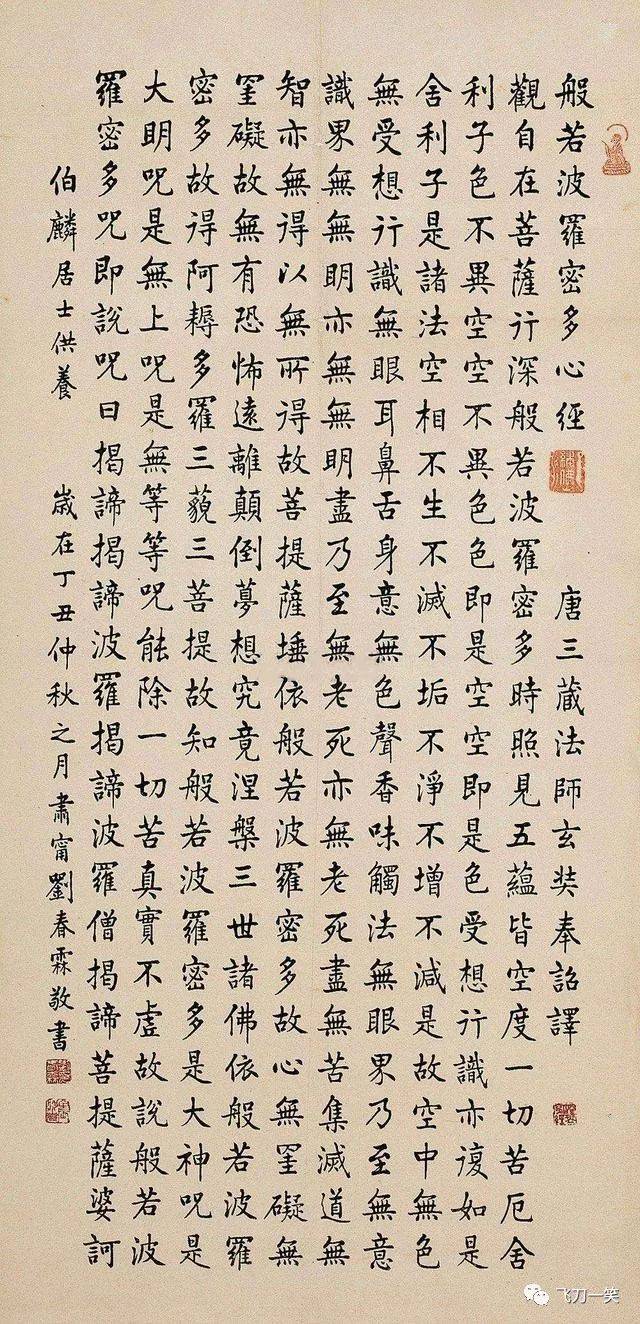 般若波羅密多心經 唐三藏法師玄奘奉詔譯
觀自在菩薩行深般若波羅密多時照見五蘊皆空度一切苦厄舍
利子色不異空空不異色色即是空空即是色受想行識亦復如是
舍利子是諸法空相不生不滅不垢不淨不增不減是故空中無色
無受想行識無眼耳鼻舌身意無色聲香味觸法無眼界乃至無意
識界無無明亦無無明盡乃至無老死亦無老死盡無苦集滅道無
智亦無得以無所得故菩提薩埵依般若波羅密多故心無罣礙無
罣礙故無有恐怖遠離顛倒夢想究竟涅槃三世諸佛依般若波羅
密多故得阿耨多羅三藐三菩提故知般若波羅密多是大神呪是
大明呪是無上呪是無等等呪能除一切苦真實不虛故說般若波
羅密多呪即說呪曰揭諦揭諦波羅揭諦波羅僧揭諦菩提薩婆訶
伯麟居士供養 歲在丁丑仲秋之月肅甯劉春霖敬書
飞刀一笑